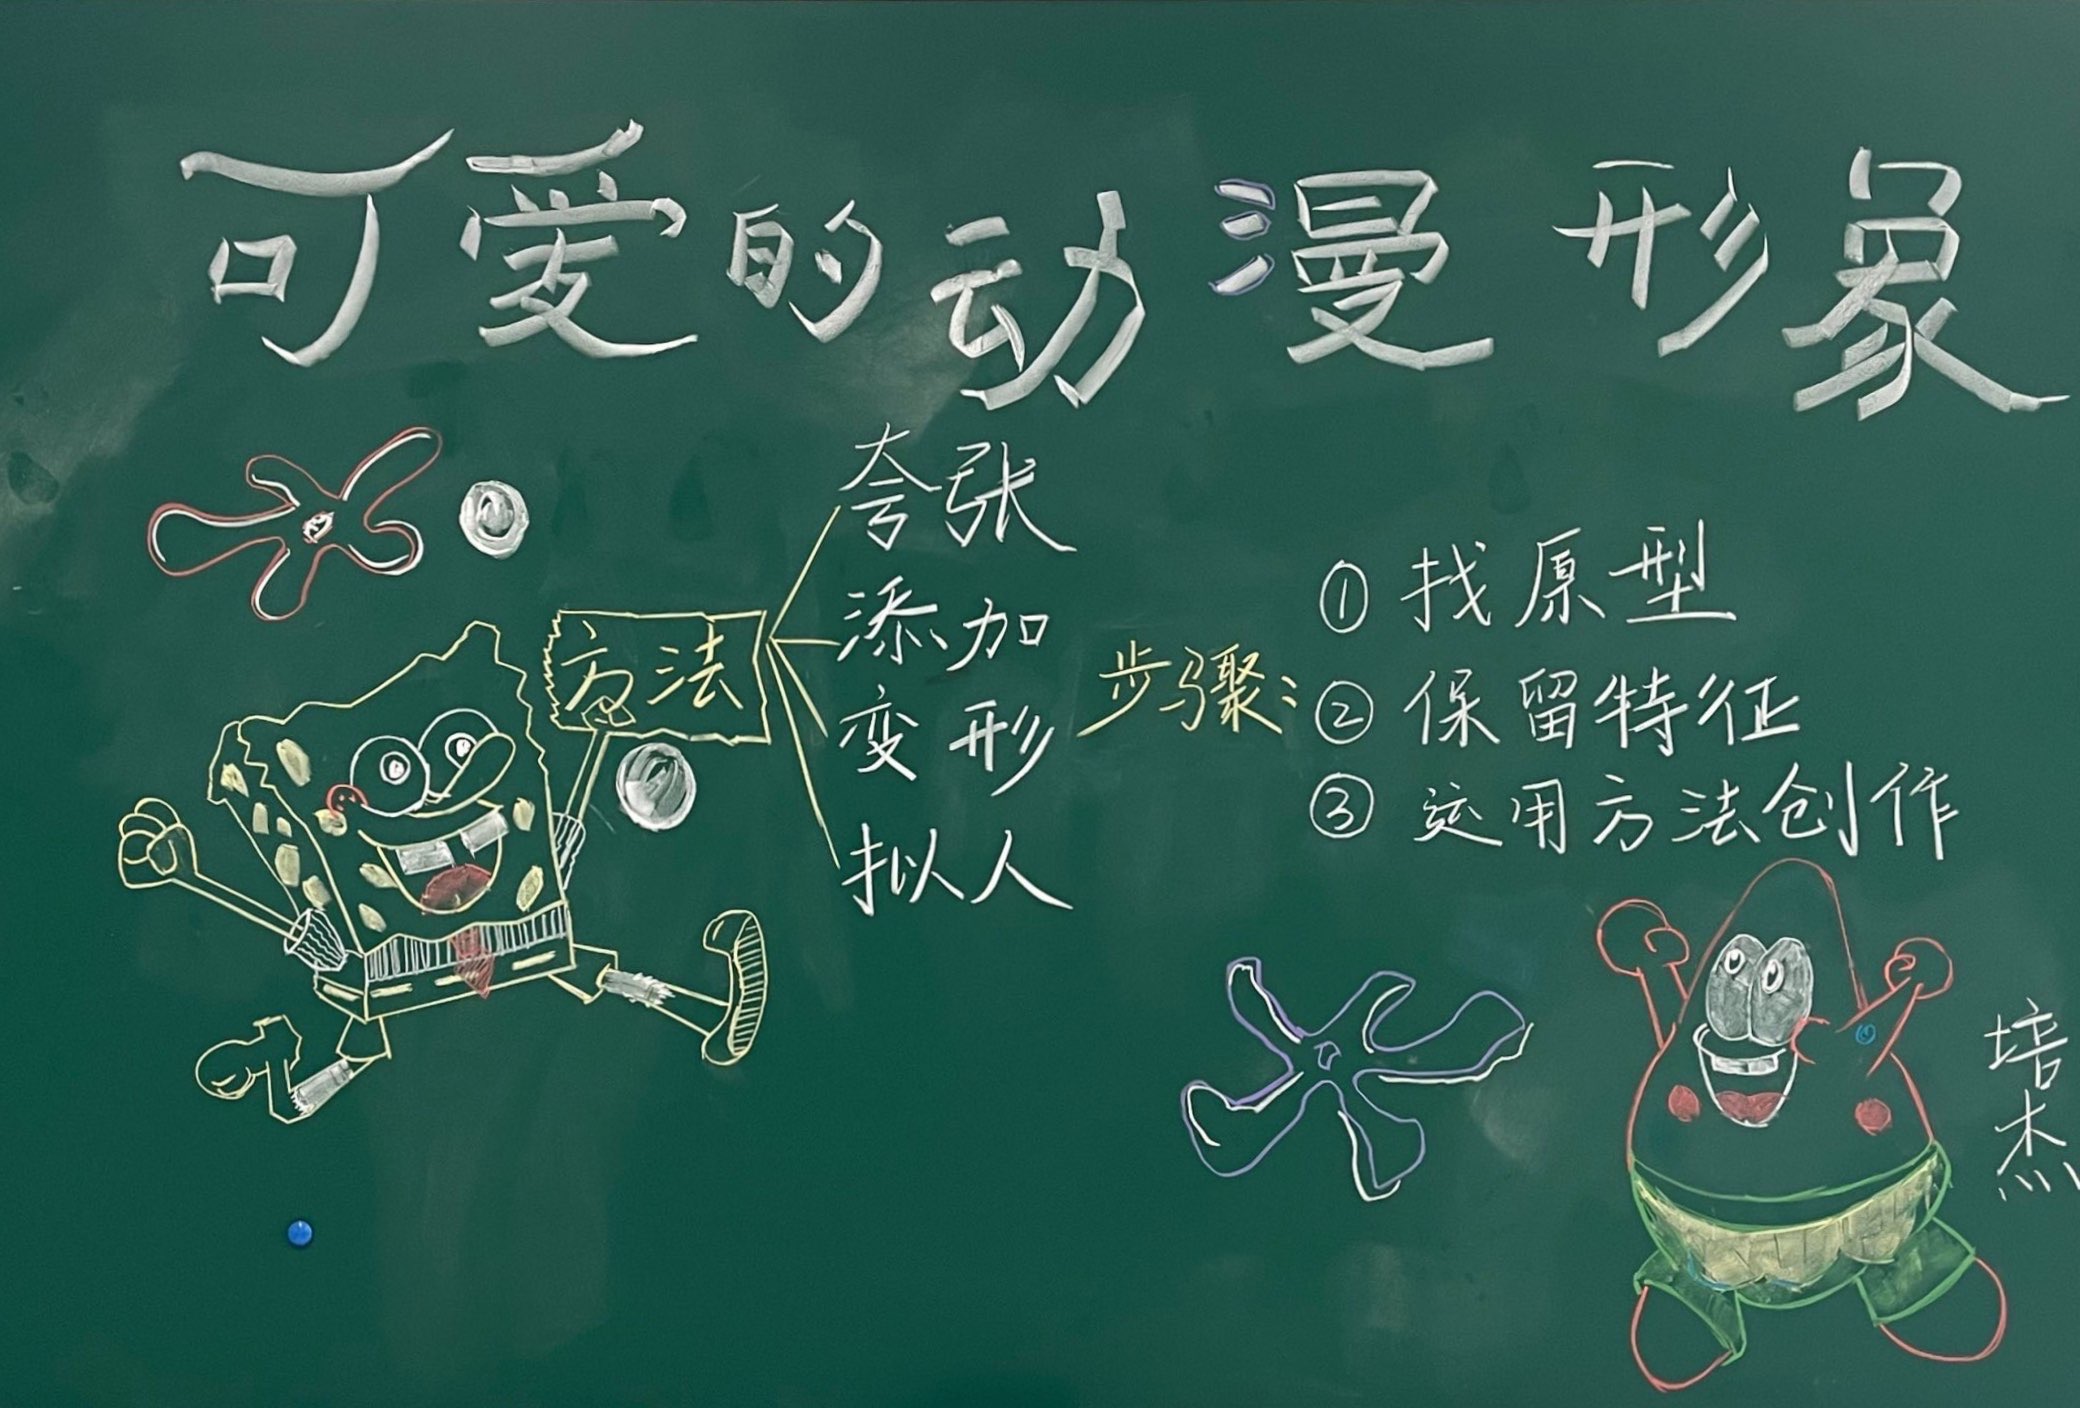 可爱的动漫形象
方法
夸张
添加
变形
拟人
步骤:
① 找原型
② 保留特征
③ 运用方法创作
培杰